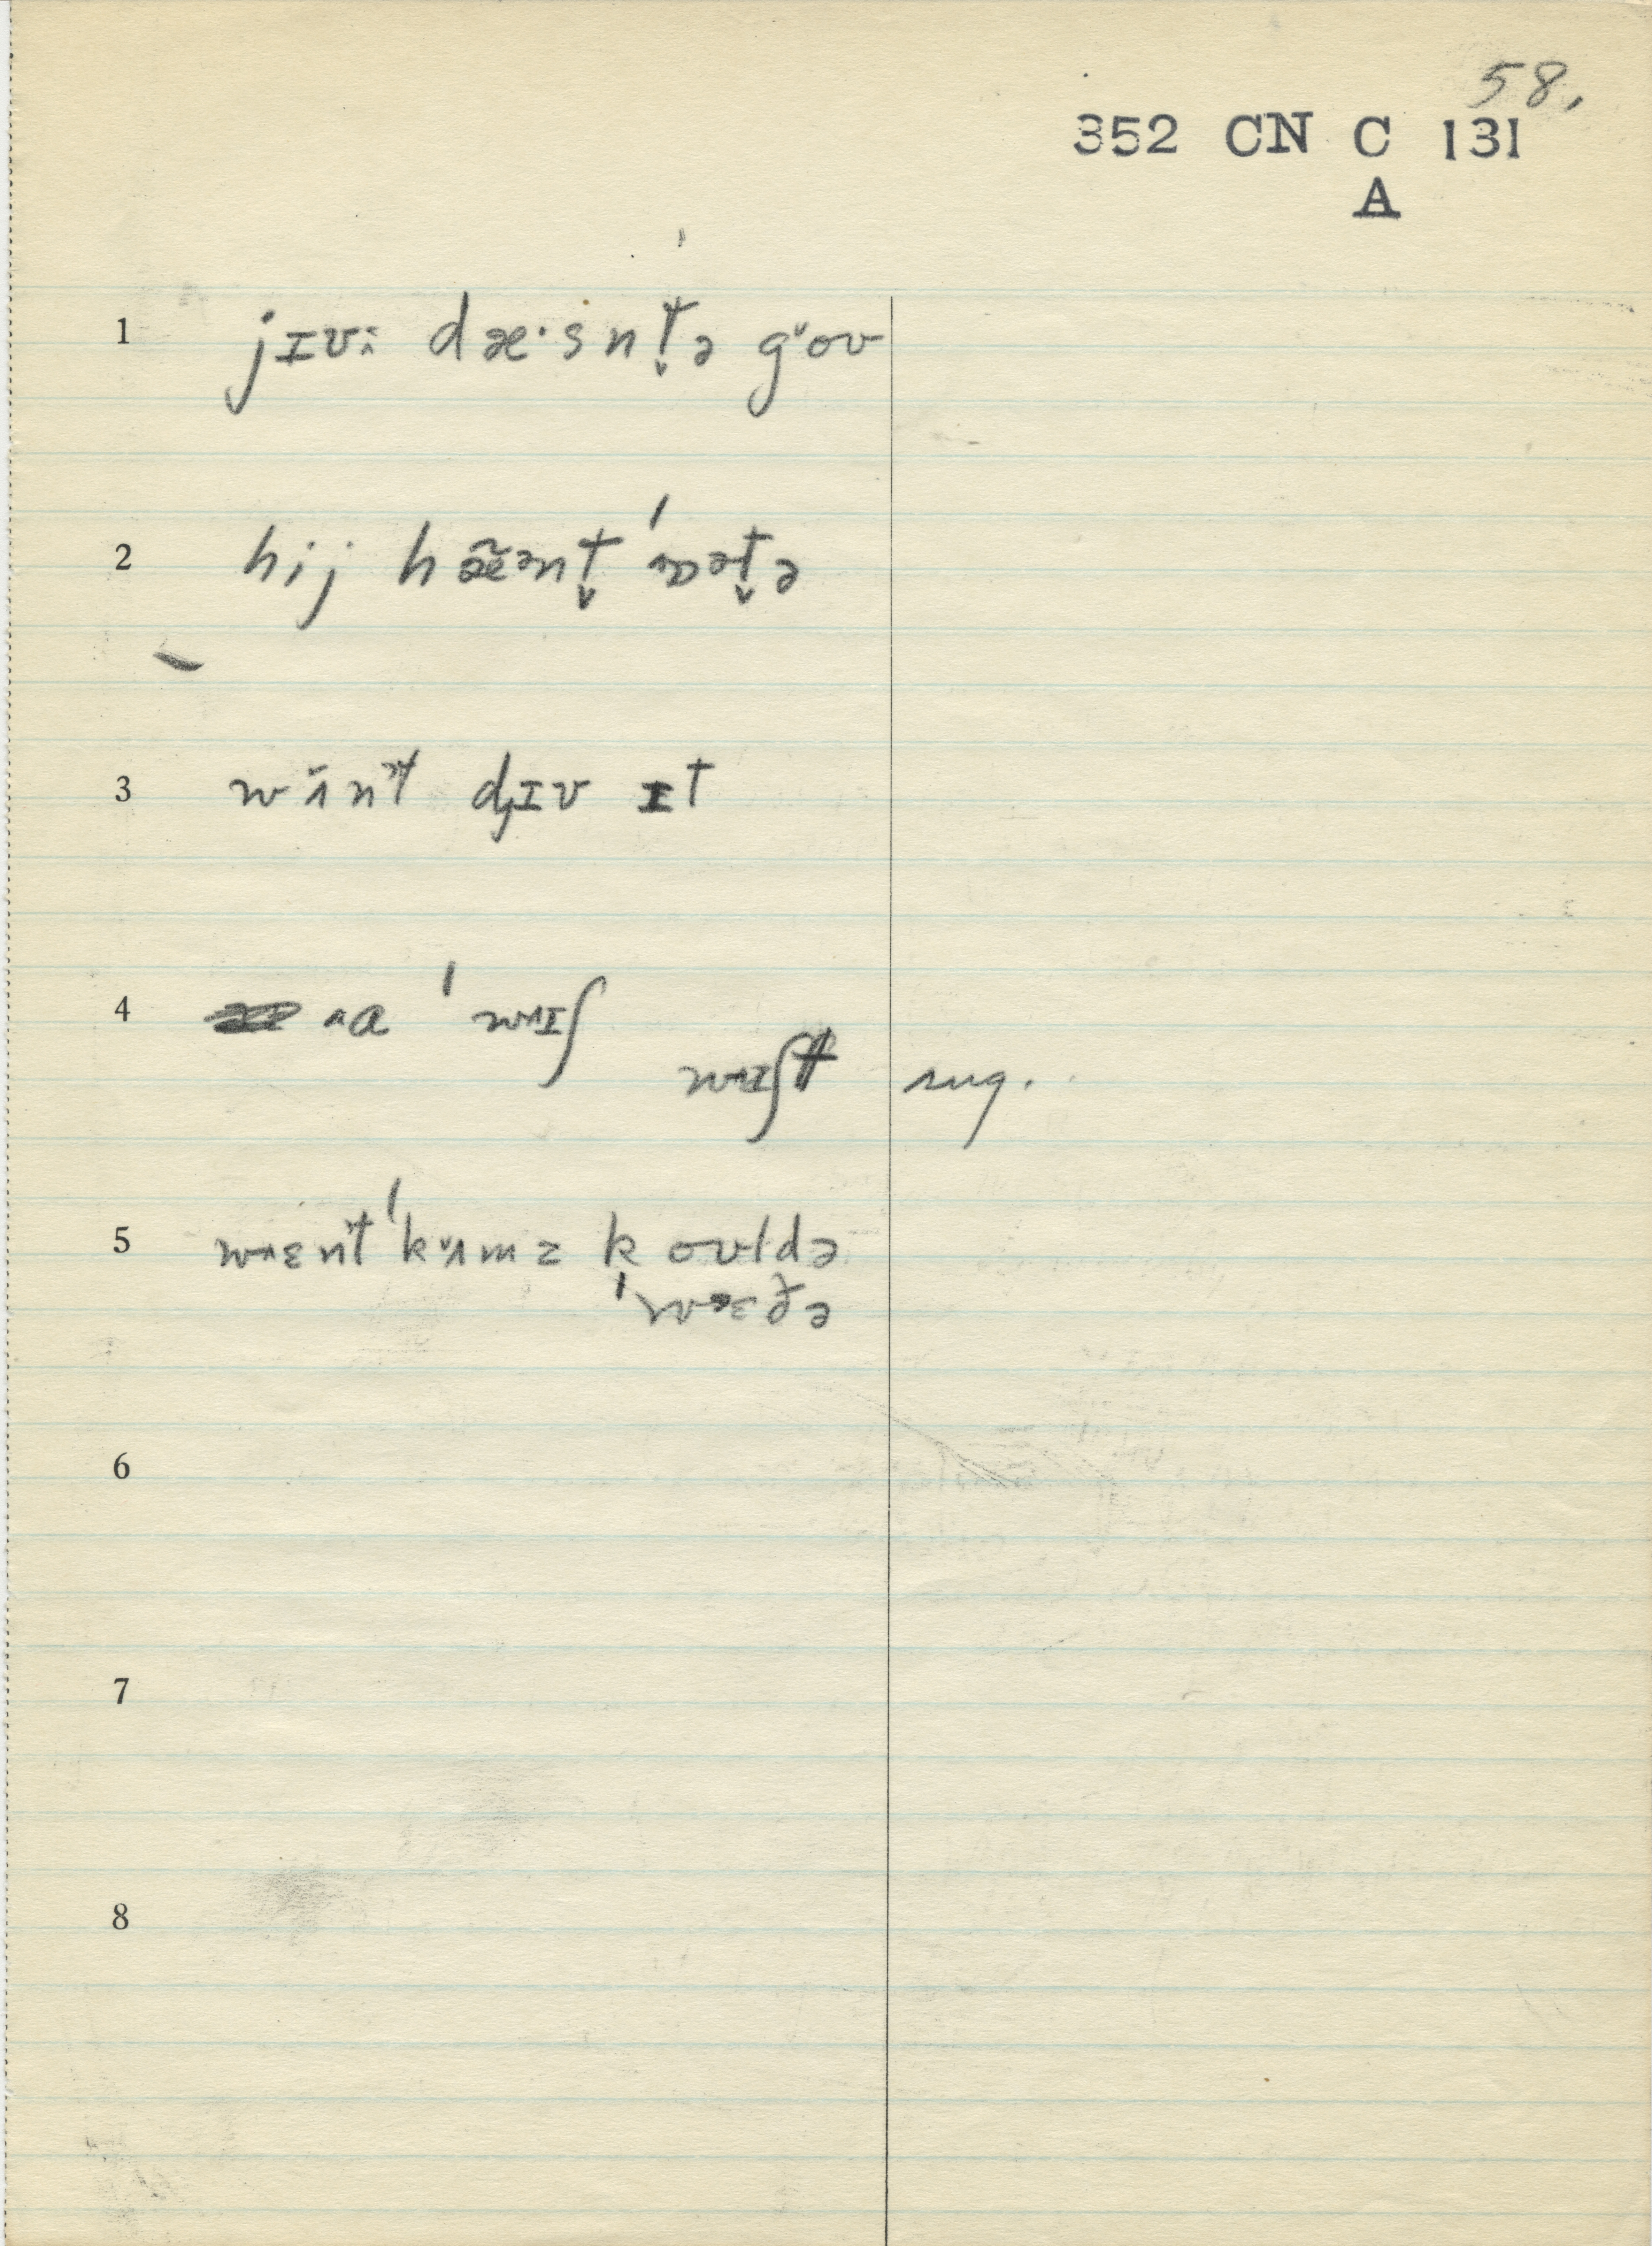 58.
352 CN C 131
A
1 jɪʊ: dæ·snt̬ə gᵛoʊ
2 hij hæ̃ᵊnt̬ ˈɒət̬ə
3 wʌ̃nt dj̩ɪʊ ɪt
4 ^a ˈw^ɪʃ
w^ɪʃt sug.
5 w^ɛnt ˈkᵛʌmz koʊldə
ˈwɛðə
6
7
8